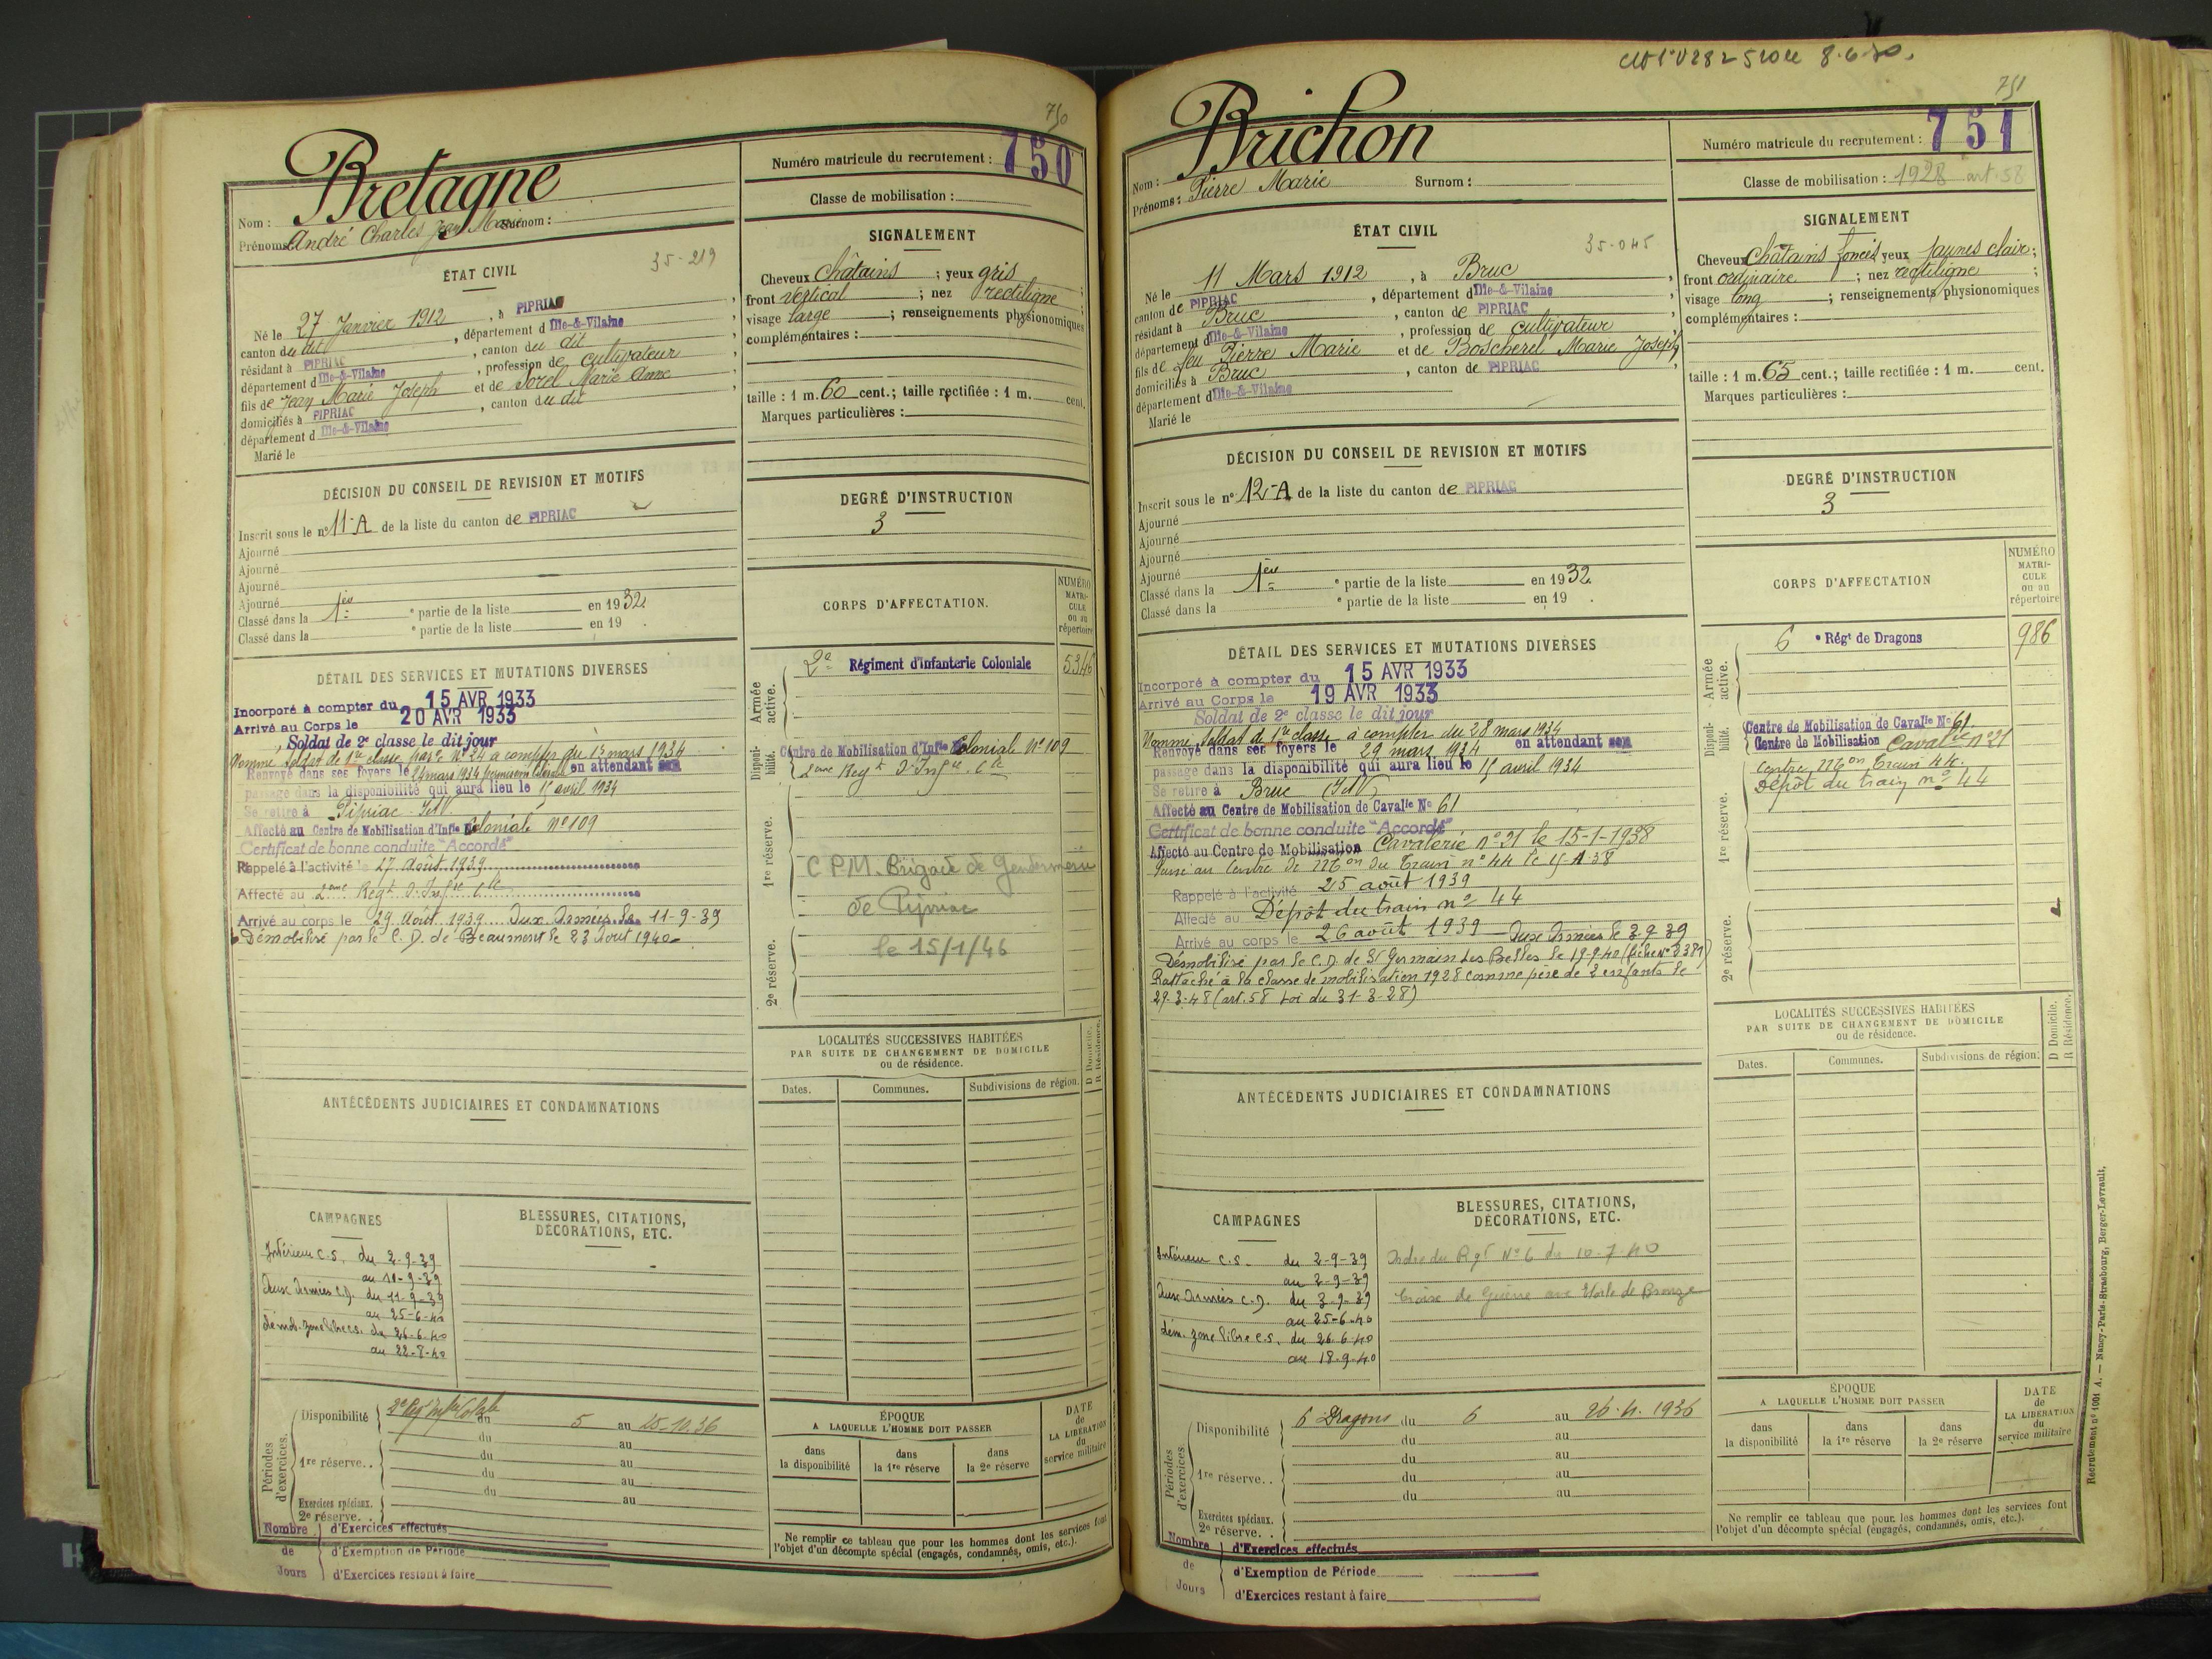 750
Bretagne
Nom :
Prénoms André Charles Jean Marie Surnom :
Numéro matricule du recrutement : 750
Classe de mobilisation :
35-219
ÉTAT CIVIL
Né le 27 Janvier 1912, à PIPRIAC,
canton du dit, département d Ille-&-Vilaine,
résidant à PIPRIAC, canton du dit,
département d Ille-&-Vilaine, profession de cultivateur
fils de Jean Marie Joseph et de Sorel Marie Anne,
domiciliés à PIPRIAC, canton du dit,
département d Ille-&-Vilaine
Marié le
SIGNALEMENT
Cheveux châtains ; yeux gris ;
front vertical ; nez rectiligne ;
visage large ; renseignements physionomiques
complémentaires :
taille : 1 m. 60 cent.; taille rectifiée : 1 m. cent.
Marques particulières :
DÉCISION DU CONSEIL DE REVISION ET MOTIFS
Inscrit sous le n° 11-A de la liste du canton de PIPRIAC
Ajourné
Ajourné
Ajourné
Ajourné
Classé dans la 1ère e partie de la liste en 1932.
Classé dans la e partie de la liste en 19 .
DEGRÉ D'INSTRUCTION
3
CORPS D'AFFECTATION.
NUMÉRO MATRI-CULE ou au répertoire
Armée active.
2e Régiment d'infanterie Coloniale 5346
Disponi-bilité.
Centre de Mobilisation d'Infie Coloniale N° 109
2ème Regt d'Infie Cle
1re réserve.
C.P.M. Brigade de Gendarmerie
de Pipriac
2e réserve.
le 15/1/46
DÉTAIL DES SERVICES ET MUTATIONS DIVERSES
Incorporé à compter du 15 AVR 1933
Arrivé au Corps le 20 AVR 1933
Soldat de 2e classe le dit jour
Nommé Soldat de 1re classe N° 24 à compter du 13 mars 1934
Renvoyé dans ses foyers le mars 1934 en attendant son
passage dans la disponibilité qui aura lieu le 15 avril 1934
Se retire à Pipriac I&V.
Affecté au Centre de Mobilisation d'Infie Coloniale N° 109
Certificat de bonne conduite "Accordé"
Rappelé à l'activité le 27 Août 1939
Affecté au 2ème Regt d'Infie Cle
Arrivé au corps le 29 Août 1939 Aux Armées le 11-9-39
Démobilisé par le C.D. de Beaumont le 23 Aout 1940
LOCALITÉS SUCCESSIVES HABITÉES
PAR SUITE DE CHANGEMENT DE DOMICILE
ou de résidence.
D Domicile. R Résidence.
Dates. Communes. Subdivisions de région.
ANTÉCÉDENTS JUDICIAIRES ET CONDAMNATIONS
CAMPAGNES
Intérieur C.S. du 2-9-39
au 10-9-39
Aux Armées C.D. du 11-9-39
au 25-6-40
démob. zone libre C.S. du 26-6-40
au 22-8-40
BLESSURES, CITATIONS,
DÉCORATIONS, ETC.
Périodes d'exercices.
Disponibilité 2e Regt Infie Colale du 5 au 25-10.36
du au
1re réserve.. du au
du au
Exercices spéciaux. du au
2e réserve. .
Nombre d'Exercices effectués
de d'Exemption de Période
Jours d'Exercices restant à faire
ÉPOQUE
A LAQUELLE L'HOMME DOIT PASSER
dans la disponibilité
dans la 1re réserve
dans la 2e réserve
DATE de LA LIBÉRATION du service militaire
Ne remplir ce tableau que pour les hommes dont les services font
l'objet d'un décompte spécial (engagés, condamnés, omis, etc.).
8.6.30.
751
Brichon
Nom :
Prénoms : Pierre Marie Surnom :
Numéro matricule du recrutement : 751
Classe de mobilisation : 1928 art. 58
35-045
ÉTAT CIVIL
Né le 11 Mars 1912, à Bruc,
canton de PIPRIAC, département d Ille-&-Vilaine
résidant à Bruc, canton de PIPRIAC,
département d Ille-&-Vilaine, profession de cultivateur
fils de feu Pierre Marie et de Boscherel Marie Joseph,
domiciliés à Bruc, canton de PIPRIAC,
département d Ille-&-Vilaine
Marié le
SIGNALEMENT
Cheveux châtains foncés yeux jaunes clair ;
front ordinaire ; nez rectiligne ;
visage long ; renseignements physionomiques
complémentaires :
taille : 1 m. 65 cent.; taille rectifiée : 1 m. cent.
Marques particulières :
DÉCISION DU CONSEIL DE REVISION ET MOTIFS
Inscrit sous le n° 12-A de la liste du canton de PIPRIAC
Ajourné
Ajourné
Ajourné
Ajourné
Classé dans la 1ère e partie de la liste en 1932.
Classé dans la e partie de la liste en 19 .
DEGRÉ D'INSTRUCTION
3
CORPS D'AFFECTATION
NUMÉRO MATRI-CULE ou au répertoire
Armée active.
6 e Régt de Dragons 986
Disponi-bilité.
Centre de Mobilisation de Cavalie N° 61.
Centre de Mobilisation Cavalie n° 21
Centre Mon Train 44.
Dépôt du train n° 44
1re réserve.
2e réserve.
DÉTAIL DES SERVICES ET MUTATIONS DIVERSES
Incorporé à compter du 15 AVR 1933
Arrivé au Corps le 19 AVR 1933
Soldat de 2e classe le dit jour
Nommé Soldat de 1re classe à compter du 28 mars 1934
Renvoyé dans ses foyers le 29 mars 1934 en attendant son
passage dans la disponibilité qui aura lieu le 15 avril 1934
Se retire à Bruc (I&V)
Affecté au Centre de Mobilisation de Cavalie N° 61
Certificat de bonne conduite "Accordé"
Affecté au Centre de Mobilisation Cavalerie n° 21 le 15-1-1938
Passé au Centre de Mon du Train n° 44 le 15-4-38
Rappelé à l'activité 25 août 1939
Affecté au Dépôt du train n° 44
Arrivé au corps le 26 août 1939 Aux Armées le 3.9.39
Démobilisé par le C.D. de St Germain Les Belles le 19.9.40 (fiche N° 2381)
Rattaché à la classe de mobilisation 1928 comme père de 2 enfants le
29.3.48 (art. 58 Loi du 31-3-28)
LOCALITÉS SUCCESSIVES HABITÉES
PAR SUITE DE CHANGEMENT DE DOMICILE
ou de résidence.
D Domicile. R Résidence.
Dates. Communes. Subdivisions de région.
ANTÉCÉDENTS JUDICIAIRES ET CONDAMNATIONS
CAMPAGNES
Intérieur C.S. du 2-9-39
au 2-9-39
Aux Armées C.D. du 3.9.39
au 25-6-40
dém. zone libre C.S. du 26.6.40
au 18.9.40
BLESSURES, CITATIONS,
DÉCORATIONS, ETC.
Ordre du Rgt N° 6 du 10-7-40
Croix de Guerre avec Etoile de Bronze
Périodes d'exercices.
Disponibilité 6 Dragons du 6 au 26.4.1936
du au
1re réserve. . du au
du au
du au
Exercices spéciaux.
2e réserve. .
Nombre d'Exercices effectués
de d'Exemption de Période
Jours d'Exercices restant à faire
ÉPOQUE
A LAQUELLE L'HOMME DOIT PASSER
dans la disponibilité
dans la 1re réserve
dans la 2e réserve
DATE de LA LIBÉRATION du service militaire
Ne remplir ce tableau que pour les hommes dont les services font
l'objet d'un décompte spécial (engagés, condamnés, omis, etc.).
Recrutement n° 1001 A. — Nancy-Paris-Strasbourg, Berger-Levrault.